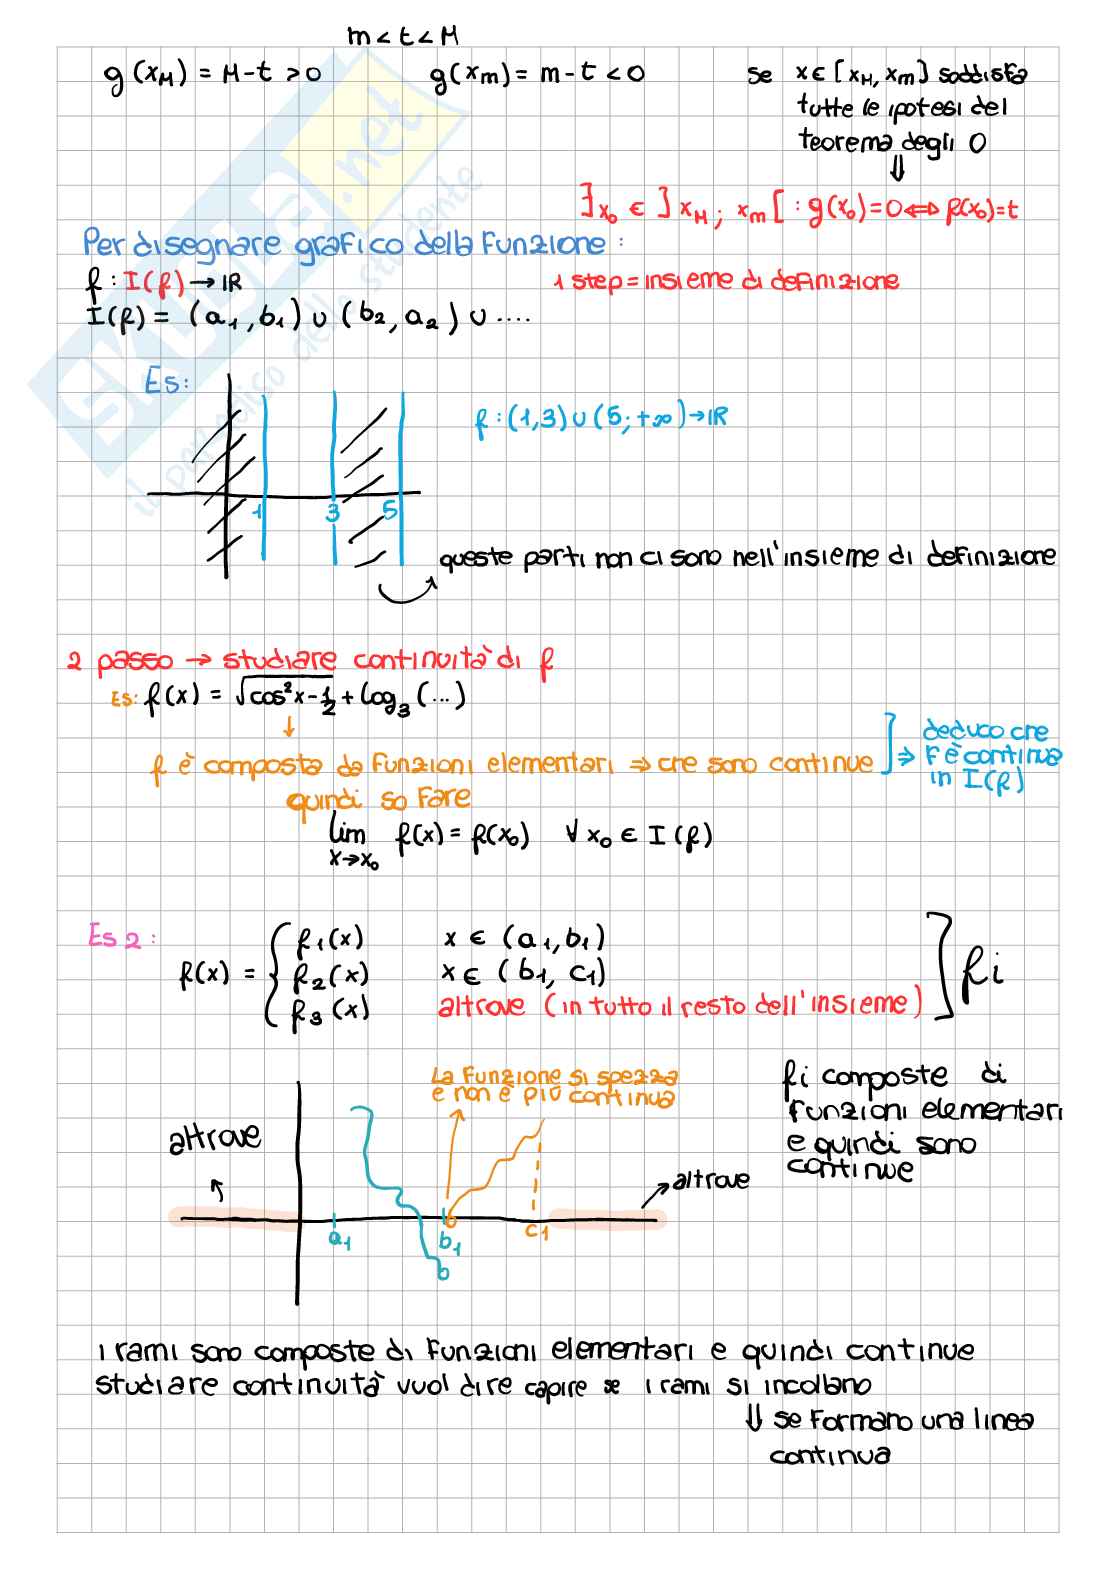 m < t < M
g(x_M) = M-t > 0    g(x_m) = m-t < 0    se x ∈ [x_M, x_m] soddisfa
tutte le ipotesi del
teorema degli 0
⇓
∃ x_0 ∈ ] x_M ; x_m [ : g(x_0) = 0 ⇔ f(x_0) = t
Per disegnare grafico della funzione :
f : I(f) → IR    1 step = insieme di definizione
I(f) = (a_1, b_1) ∪ (b_2, a_2) ∪ ....
Es:
f : (1,3) ∪ (5; +∞) → IR
1 3 5
queste parti non ci sono nell'insieme di definizione
2 passo → studiare continuità di f
Es: f(x) = √(cos²x - 1/2) + log_3 (...)
↓
f è composta da funzioni elementari ⇒ che sono continue ] ⇒ deduco che
F è continua
in I(f)
quindi so fare
lim f(x) = f(x_0)  ∀ x_0 ∈ I(f)
x→x_0
Es 2 :
f(x) = { f_1(x)    x ∈ (a_1, b_1)
f_2(x)    x ∈ (b_1, c_1)
f_3(x)    altrove (in tutto il resto dell'insieme) ] fi
La funzione si spezza
e non è più continua
fi composte di
funzioni elementari
e quindi sono
continue
altrove
altrove
a_1 b_1 c_1
i rami sono composte di funzioni elementari e quindi continue
studiare continuità vuol dire capire se i rami si incollano
⇓ se formano una linea
continua
SKUOLA.net
il paradiso dello studente